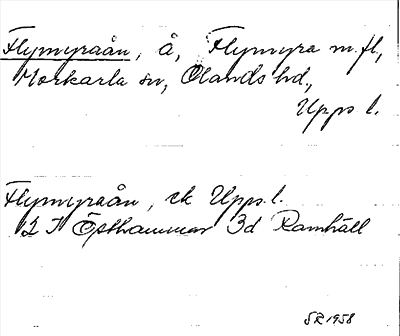 Flymyraån, å, Flymyra m.fl,
Morkarla sn, Olands hd.,
Upps. l.
Flymyraån, ek Upps. l.
12 I Östhammar 3d Ramhäll
SR 1958